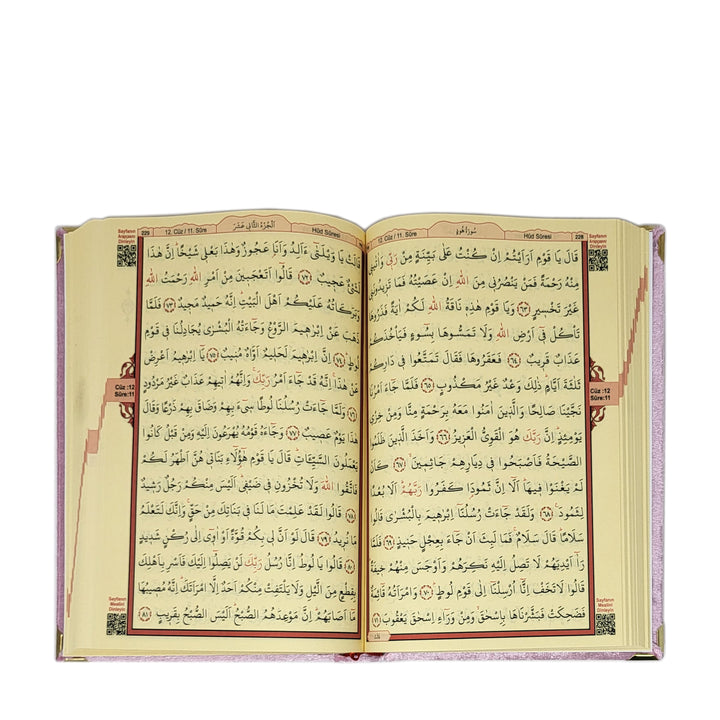 12. Cüz / 11. Sûre سُورَةُ هُودٍ Hûd Sûresi 228
Sayfanın
Arapçasını
Dinleyin
قَالَ يَا قَوْمِ اَرَاَيْتُمْ اِنْ كُنْتُ عَلٰى بَيِّنَةٍ مِنْ رَبّ۪ي وَاٰتٰين۪ي
مِنْهُ رَحْمَةً فَمَنْ يَنْصُرُن۪ي مِنَ اللّٰهِ اِنْ عَصَيْتُهُ فَمَا تَز۪يدُونَن۪ي
غَيْرَ تَخْس۪يرٍ ﴿٦٣﴾ وَيَا قَوْمِ هٰذِه۪ نَاقَةُ اللّٰهِ لَكُمْ اٰيَةً فَذَرُوهَا
تَأْكُلْ ف۪ٓي اَرْضِ اللّٰهِ وَلَا تَمَسُّوهَا بِسُٓوءٍ فَيَأْخُذَكُمْ
عَذَابٌ قَر۪يبٌ ﴿٦٤﴾ فَعَقَرُوهَا فَقَالَ تَمَتَّعُوا ف۪ي دَارِكُمْ
ثَلٰثَةَ اَيَّامٍۜ ذٰلِكَ وَعْدٌ غَيْرُ مَكْذُوبٍ ﴿٦٥﴾ فَلَمَّا جَٓاءَ اَمْرُنَا
نَجَّيْنَا صَالِحًا وَالَّذ۪ينَ اٰمَنُوا مَعَهُ بِرَحْمَةٍ مِنَّا وَمِنْ خِزْيِ
يَوْمِئِذٍۜ اِنَّ رَبَّكَ هُوَ الْقَوِيُّ الْعَز۪يزُ ﴿٦٦﴾ وَاَخَذَ الَّذ۪ينَ ظَلَمُوا
الصَّيْحَةُ فَاَصْبَحُوا ف۪ي دِيَارِهِمْ جَاثِم۪ينَۙ ﴿٦٧﴾ كَاَنْ
لَمْ يَغْنَوْا ف۪يهَاۜ اَلَٓا اِنَّ ثَمُودَا۬ كَفَرُوا رَبَّهُمْۜ اَلَا بُعْدًا
لِثَمُودَ۟ ﴿٦٨﴾ وَلَقَدْ جَٓاءَتْ رُسُلُنَٓا اِبْرٰه۪يمَ بِالْبُشْرٰى قَالُوا
سَلَامًاۜ قَالَ سَلَامٌ فَمَا لَبِثَ اَنْ جَٓاءَ بِعِجْلٍ حَن۪يذٍ ﴿٦٩﴾ فَلَمَّا
رَآٰ اَيْدِيَهُمْ لَا تَصِلُ اِلَيْهِ نَكِرَهُمْ وَاَوْجَسَ مِنْهُمْ خ۪يفَةًۜ
قَالُوا لَا تَخَفْ اِنَّٓا اُرْسِلْنَٓا اِلٰى قَوْمِ لُوطٍۜ ﴿٧٠﴾ وَامْرَاَتُهُ قَٓائِمَةٌ
فَضَحِكَتْ فَبَشَّرْنَاهَا بِاِسْحٰقَۙ وَمِنْ وَرَٓاءِ اِسْحٰقَ يَعْقُوبَ ﴿٧١﴾
Cüz :12
Sûre:11
Sayfanın
Mealini
Dinleyin
229 12. Cüz / 11. Sûre اَلْجُزْءُ الثَّانِي عَشَرَ Hûd Sûresi
Sayfanın
Arapçasını
Dinleyin
قَالَتْ يَا وَيْلَتٰٓى ءَاَلِدُ وَاَنَا۬ عَجُوزٌ وَهٰذَا بَعْل۪ي شَيْخًاۜ اِنَّ هٰذَا
لَشَيْءٌ عَج۪يبٌ ﴿٧٢﴾ قَالُٓوا اَتَعْجَب۪ينَ مِنْ اَمْرِ اللّٰهِ رَحْمَتُ اللّٰهِ
وَبَرَكَاتُهُ عَلَيْكُمْ اَهْلَ الْبَيْتِۜ اِنَّهُ حَم۪يدٌ مَج۪يدٌ ﴿٧٣﴾ فَلَمَّا
ذَهَبَ عَنْ اِبْرٰه۪يمَ الرَّوْعُ وَجَٓاءَتْهُ الْبُشْرٰى يُجَادِلُنَا ف۪ي قَوْمِ
لُوطٍۜ ﴿٧٤﴾ اِنَّ اِبْرٰه۪يمَ لَحَل۪يمٌ اَوَّاهٌ مُن۪يبٌ ﴿٧٥﴾ يَٓا اِبْرٰه۪يمُ اَعْرِضْ
عَنْ هٰذَاۚ اِنَّهُ قَدْ جَٓاءَ اَمْرُ رَبِّكَۚ وَاِنَّهُمْ اٰت۪يهِمْ عَذَابٌ غَيْرُ مَرْدُودٍ
﴿٧٦﴾ وَلَمَّا جَٓاءَتْ رُسُلُنَا لُوطًا س۪ٓيءَ بِهِمْ وَضَاقَ بِهِمْ ذَرْعًا وَقَالَ
هٰذَا يَوْمٌ عَص۪يبٌ ﴿٧٧﴾ وَجَٓاءَهُ قَوْمُهُ يُهْرَعُونَ اِلَيْهِۜ وَمِنْ قَبْلُ كَانُوا
يَعْمَلُونَ السَّيِّـَٔاتِۜ قَالَ يَا قَوْمِ هٰٓؤُ۬لَٓاءِ بَنَات۪ي هُنَّ اَطْهَرُ لَكُمْ
فَاتَّقُوا اللّٰهَ وَلَا تُخْزُونِ ف۪ي ضَيْف۪يۜ اَلَيْسَ مِنْكُمْ رَجُلٌ رَش۪يدٌ
﴿٧٨﴾ قَالُوا لَقَدْ عَلِمْتَ مَا لَنَا ف۪ي بَنَاتِكَ مِنْ حَقٍّۚ وَاِنَّكَ لَتَعْلَمُ
مَا نُر۪يدُ ﴿٧٩﴾ قَالَ لَوْ اَنَّ ل۪ي بِكُمْ قُوَّةً اَوْ اٰو۪ٓي اِلٰى رُكْنٍ شَد۪يدٍ
﴿٨٠﴾ قَالُوا يَا لُوطُ اِنَّا رُسُلُ رَبِّكَ لَنْ يَصِلُٓوا اِلَيْكَ فَاَسْرِ بِاَهْلِكَ
بِقِطْعٍ مِنَ الَّيْلِ وَلَا يَلْتَفِتْ مِنْكُمْ اَحَدٌ اِلَّا امْرَاَتَكَۜ اِنَّهُ مُص۪يبُهَا
مَٓا اَصَابَهُمْۜ اِنَّ مَوْعِدَهُمُ الصُّبْحُۜ اَلَيْسَ الصُّبْحُ بِقَر۪يبٍ ﴿٨١﴾
Cüz :12
Sûre:11
Sayfanın
Mealini
Dinleyin